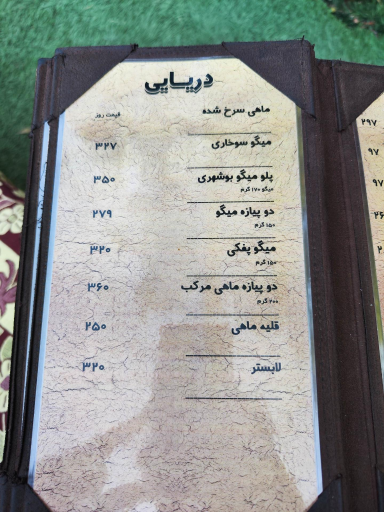 دریایی
ماهی سرخ شده قیمت روز
میگو سوخاری ۳۲۷
پلو میگو بوشهری ۳۵۰
میگو ۱۷۰ گرم
دو پیازه میگو ۲۷۹
۱۵۰ گرم
میگو پفکی ۳۲۰
۱۵۰ گرم
دو پیازه ماهی مرکب ۳۶۰
۲۰۰ گرم
قلیه ماهی ۲۵۰
لابستر ۳۲۰
۲۹۷
۹۷
۹۷